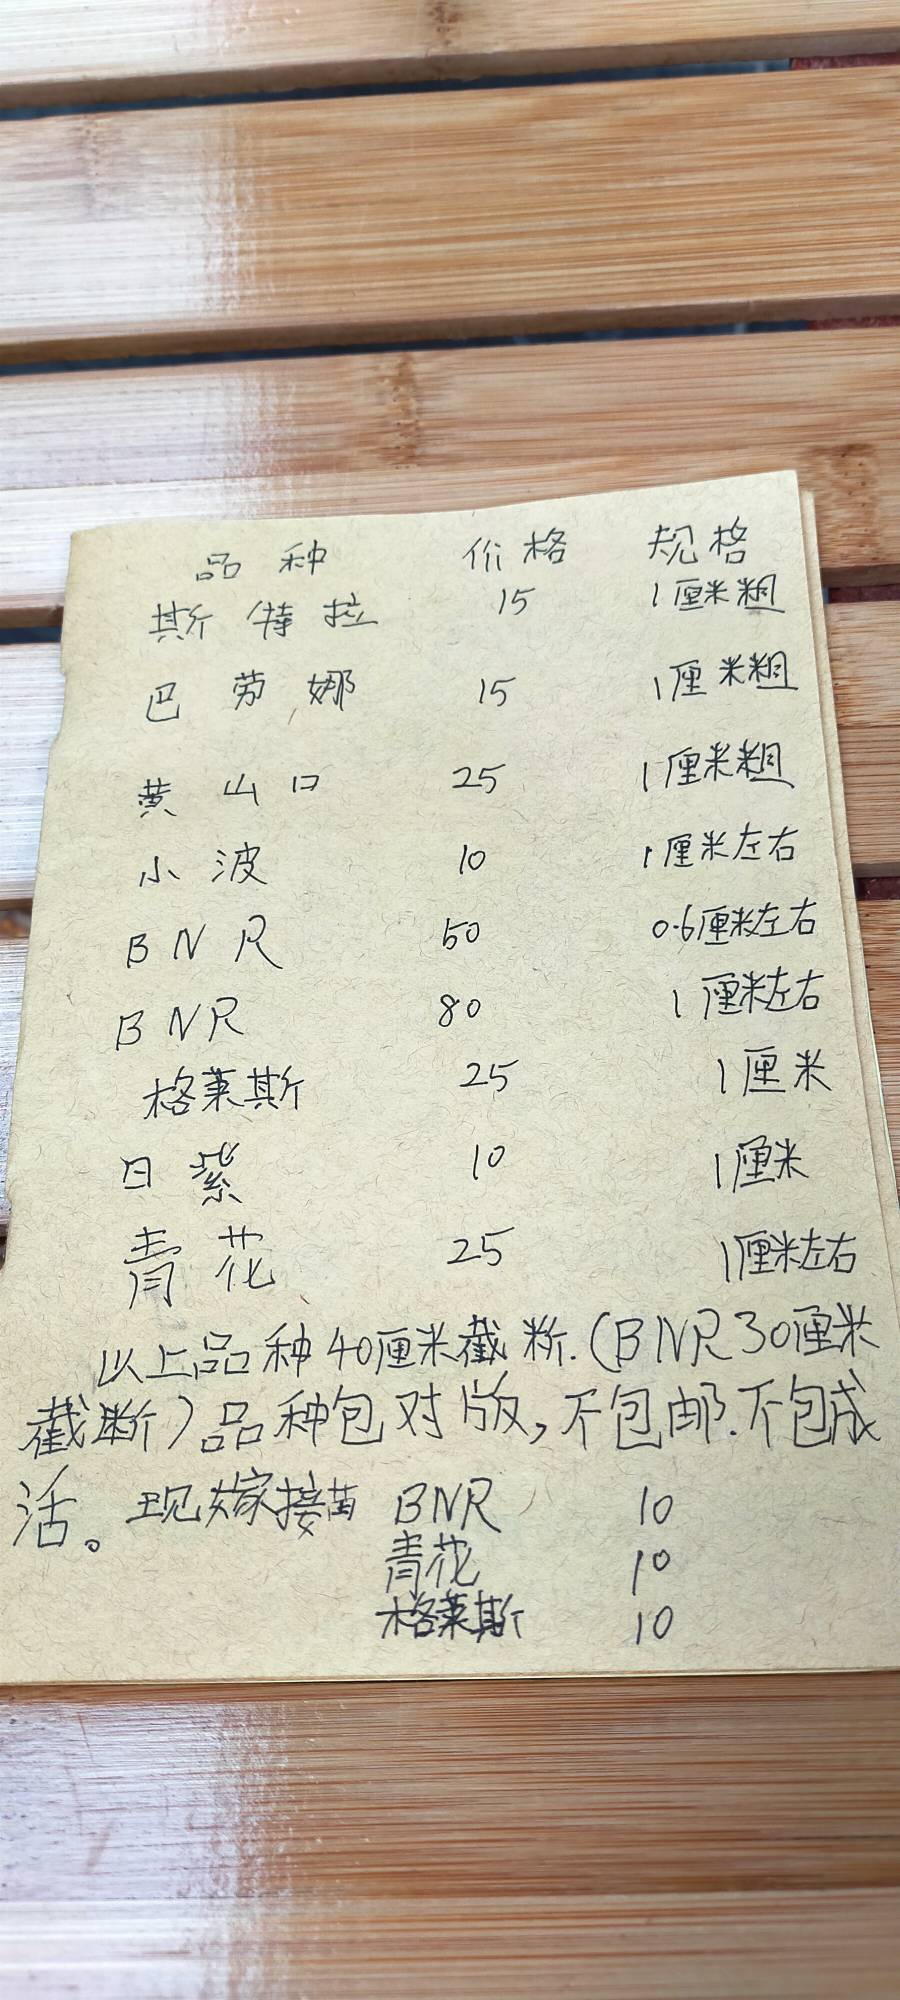 品种 价格 规格
斯特拉 15 1厘米粗
巴劳娜 15 1厘米粗
黄山口 25 1厘米粗
小波 10 1厘米左右
BNR 50 0.6厘米左右
BNR 80 1厘米左右
格莱斯 25 1厘米
日紫 10 1厘米
青花 25 1厘米左右
以上品种40厘米截断.(BNR30厘米
截断)品种包对版,不包邮.不包成
活。现嫁接苗 BNR 10
青花 10
格莱斯 10